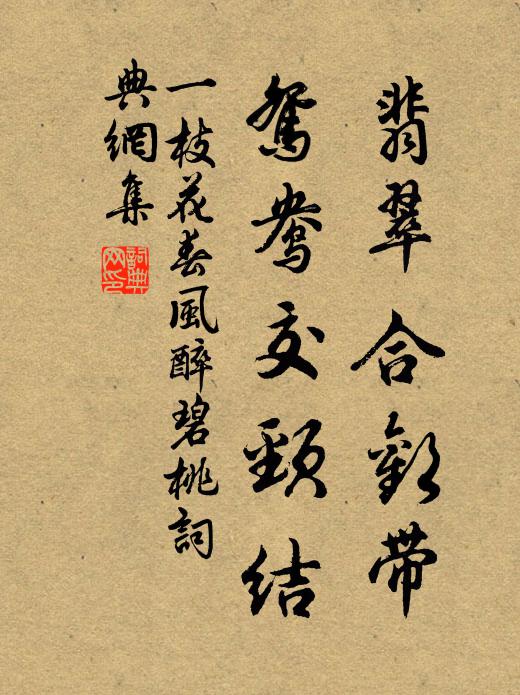 翡翠合歡带
鴛鴦交頸结
一枝花春風醉碧桃詞
典網集
詞典网印